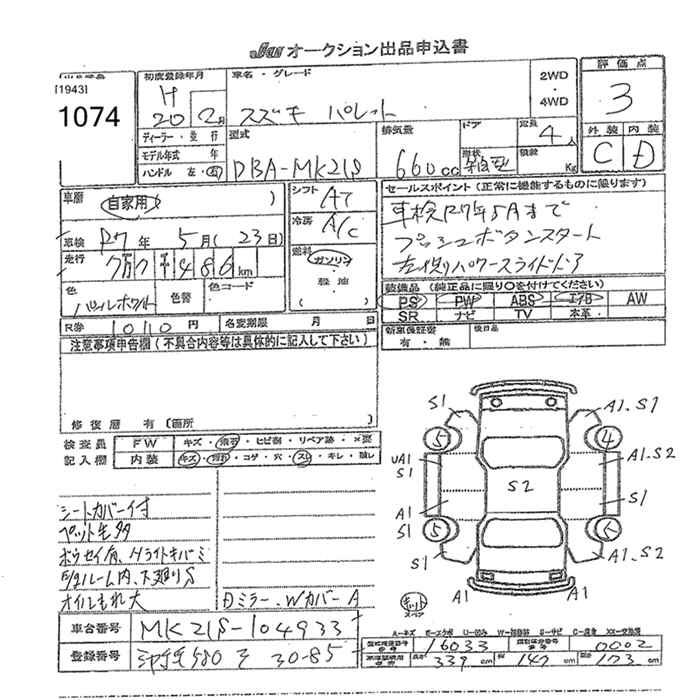 JAA オークション出品申込書
[1943]
1074
初度登録年月
H 20年 2月
車名・グレード
スズキ パレット
2WD
・
4WD
評価点
3
外装 内装
C D
ディーラー・並行
モデル年式 年
ハンドル 左・右
型式
DBA-MK21S
排気量
660cc
ドア
形状
箱型
定員
4人
積載
Kg
車歴
自家用 )
車検 R7年 5月 ( 23日)
走行 7万7千486km
色
パールホワイト
色替
色コード
R券 10110円 名変期限 月 日
シフト
AT
冷房
A/C
燃料
ガソリン
・
軽油
セールスポイント (正常に機能するものに限ります)
車検R7年5月まで
プッシュボタンスタート
左側パワースライドドア
装備品 (純正品に限り○を付けてください)
PS PW ABS エアB AW
SR ナビ TV 本革
新車保証書
有・無
後日品
注意事項申告欄 (不具合内容等は具体的に記入して下さい)
修復歴 有 (箇所
検査員 FW キズ・飛石・ヒビ割・リペア跡・×要
記入欄 内装 キズ・汚れ・コゲ・穴・スレ・キレ・破レ
シートカバー付
ペット毛多
ボウセイ有、Hライトキバミ
E/gルーム内、下廻りS
オイルもれ大
Dミラー、WカバーA
S1 A1.S1
5 4
UA1 A1.S2
S1
S2
A1 S1
S1 5
S1 A1.S2
A1 A1
キット
スペア
A-キズ
車台番号 MK21S-104933
登録番号 580 30-85
16033 0002
339cm 147cm 173cm